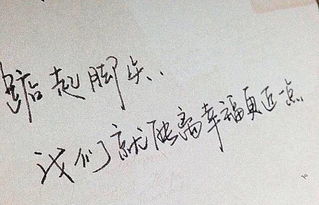 踮起脚尖..
我们就能离幸福更近一点